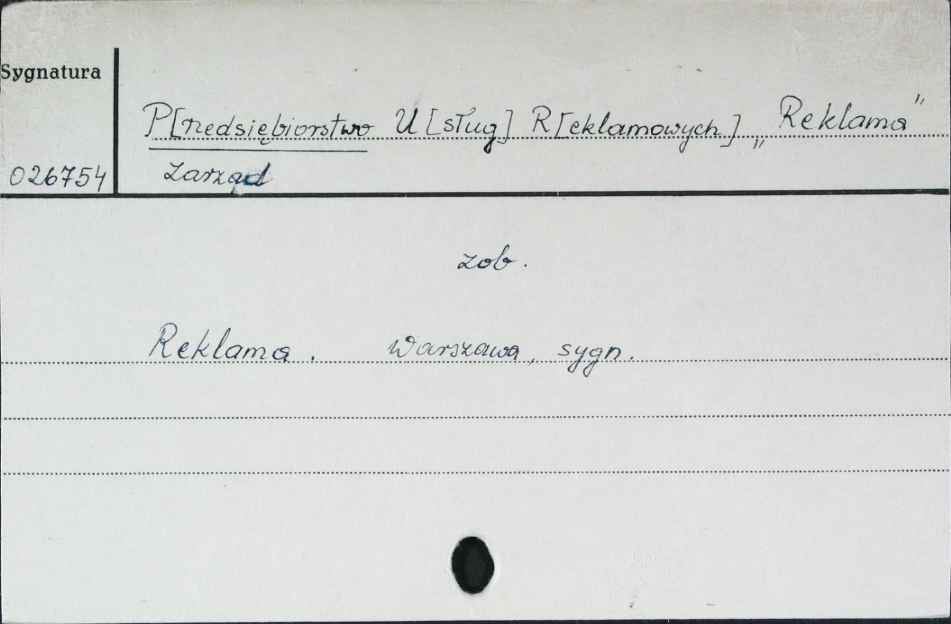 Sygnatura
P[rzedsiębiorstwo U[sług] R[eklamowych] „Reklama”
026754 Zarząd
zob.
Reklama. Warszawa, sygn.